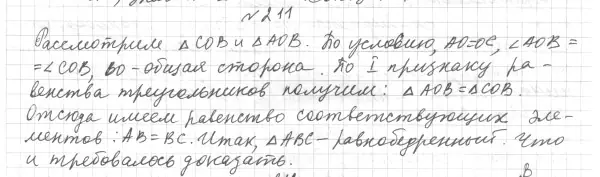 №211
Рассмотрим △COB и △AOB. По условию, AO=OC, ∠AOB =
=∠COB, BO-общая сторона. По I признаку ра-
венства треугольников получим: △AOB=△COB.
Отсюда имеем равенство соответствующих эле-
ментов: AB=BC. Итак, △ABC-равнобедренный. Что
и требовалось доказать.